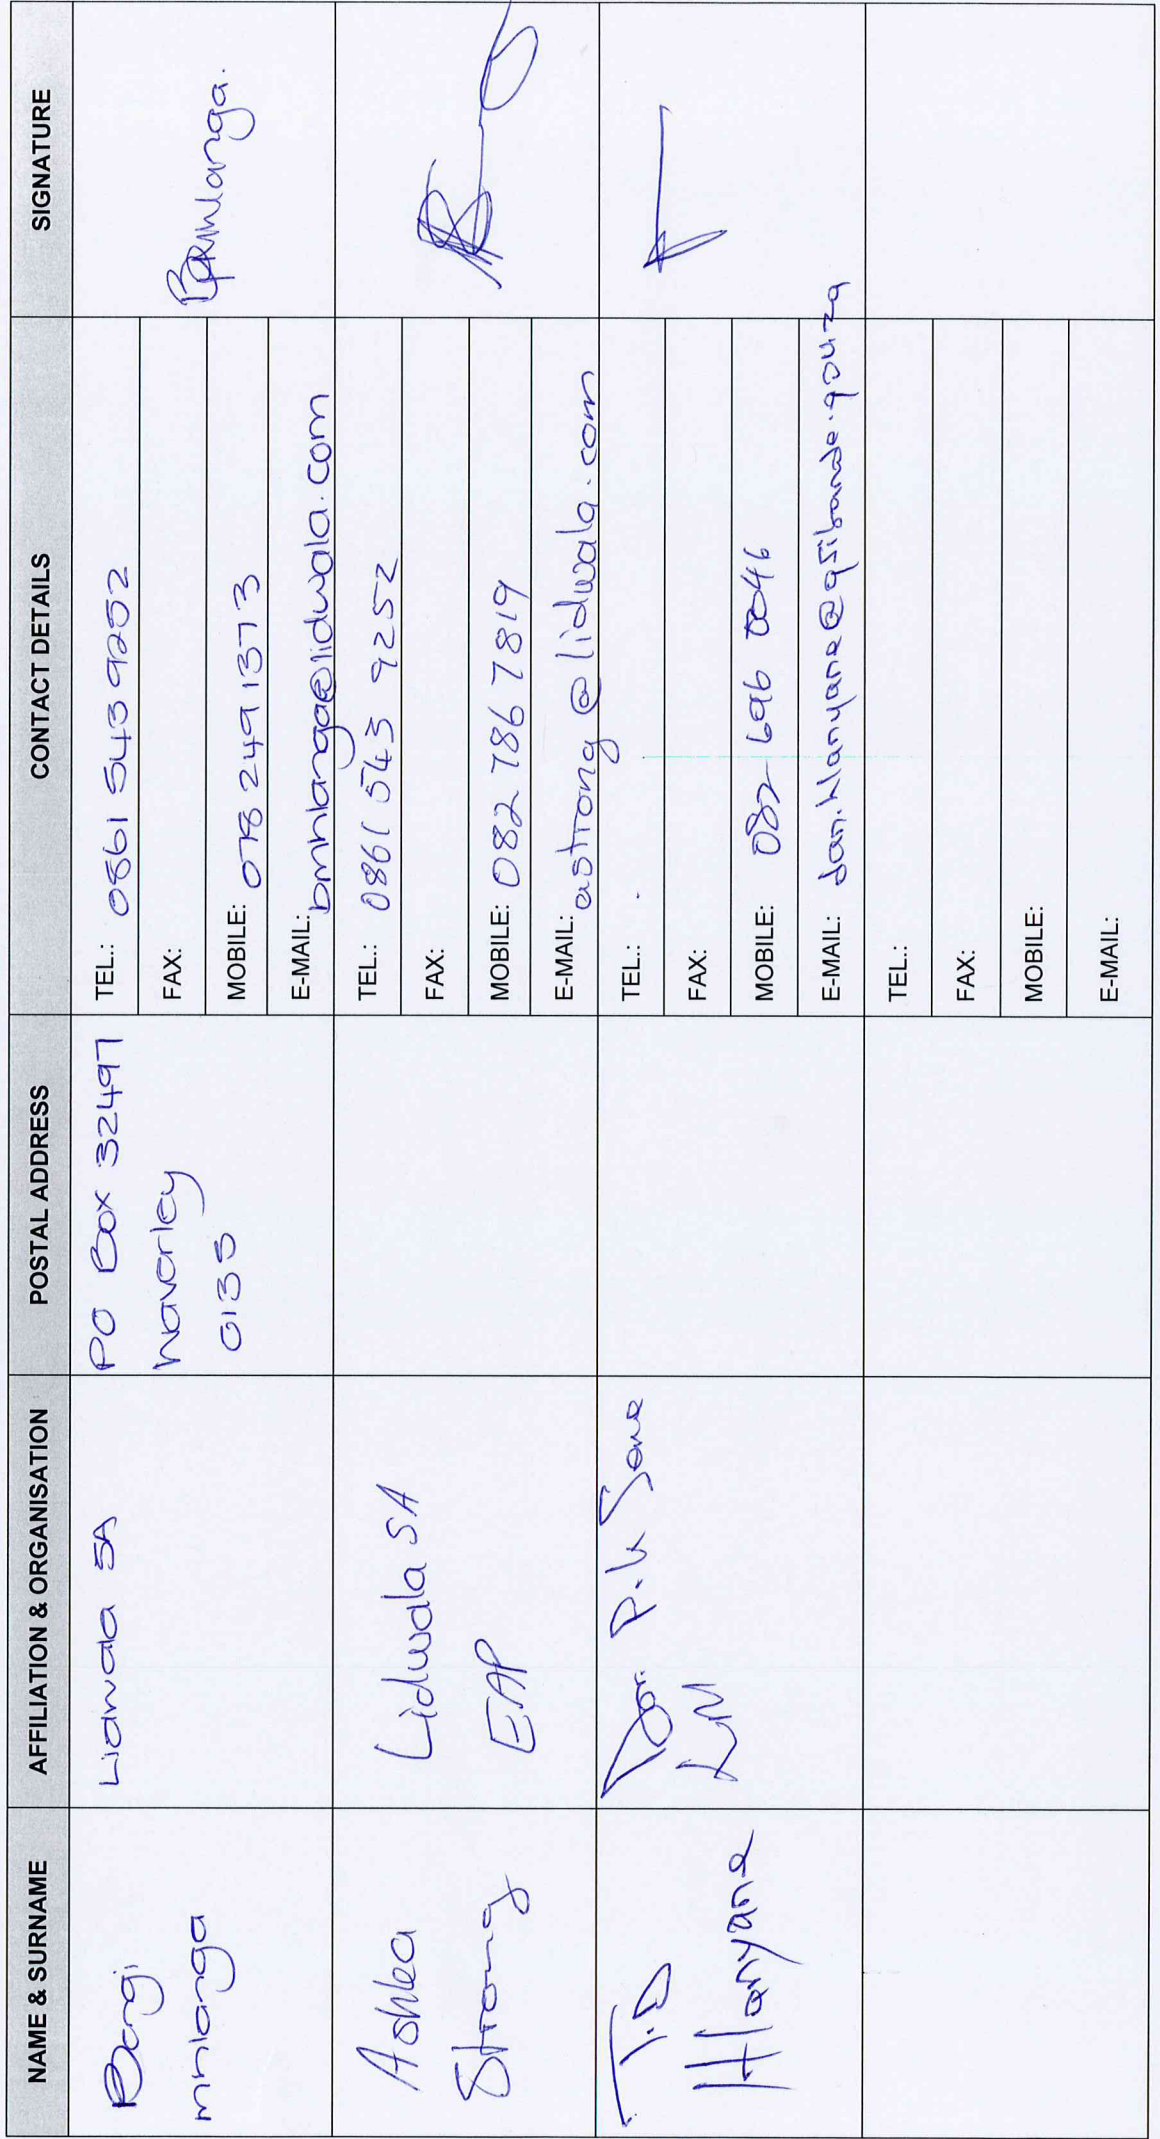 NAME & SURNAME
AFFILIATION & ORGANISATION
POSTAL ADDRESS
CONTACT DETAILS
SIGNATURE
Bongi
mnlanga
Lidwala SA
PO Box 32497
Waverley
0135
TEL.: 0861 543 9252
FAX:
MOBILE: 078 249 1373
E-MAIL: bmhlanga@lidwala.com
Ashlea
Strong
Lidwala SA
EAP
TEL.: 0861 543 9252
FAX:
MOBILE: 082 786 7819
E-MAIL: astrong@lidwala.com
T.D
Hlanyane
P.k Seme
LM
TEL.:
FAX:
MOBILE: 082 696 0046
E-MAIL: dan.hlanyane@gsibande.gov.za
TEL.:
FAX:
MOBILE:
E-MAIL: